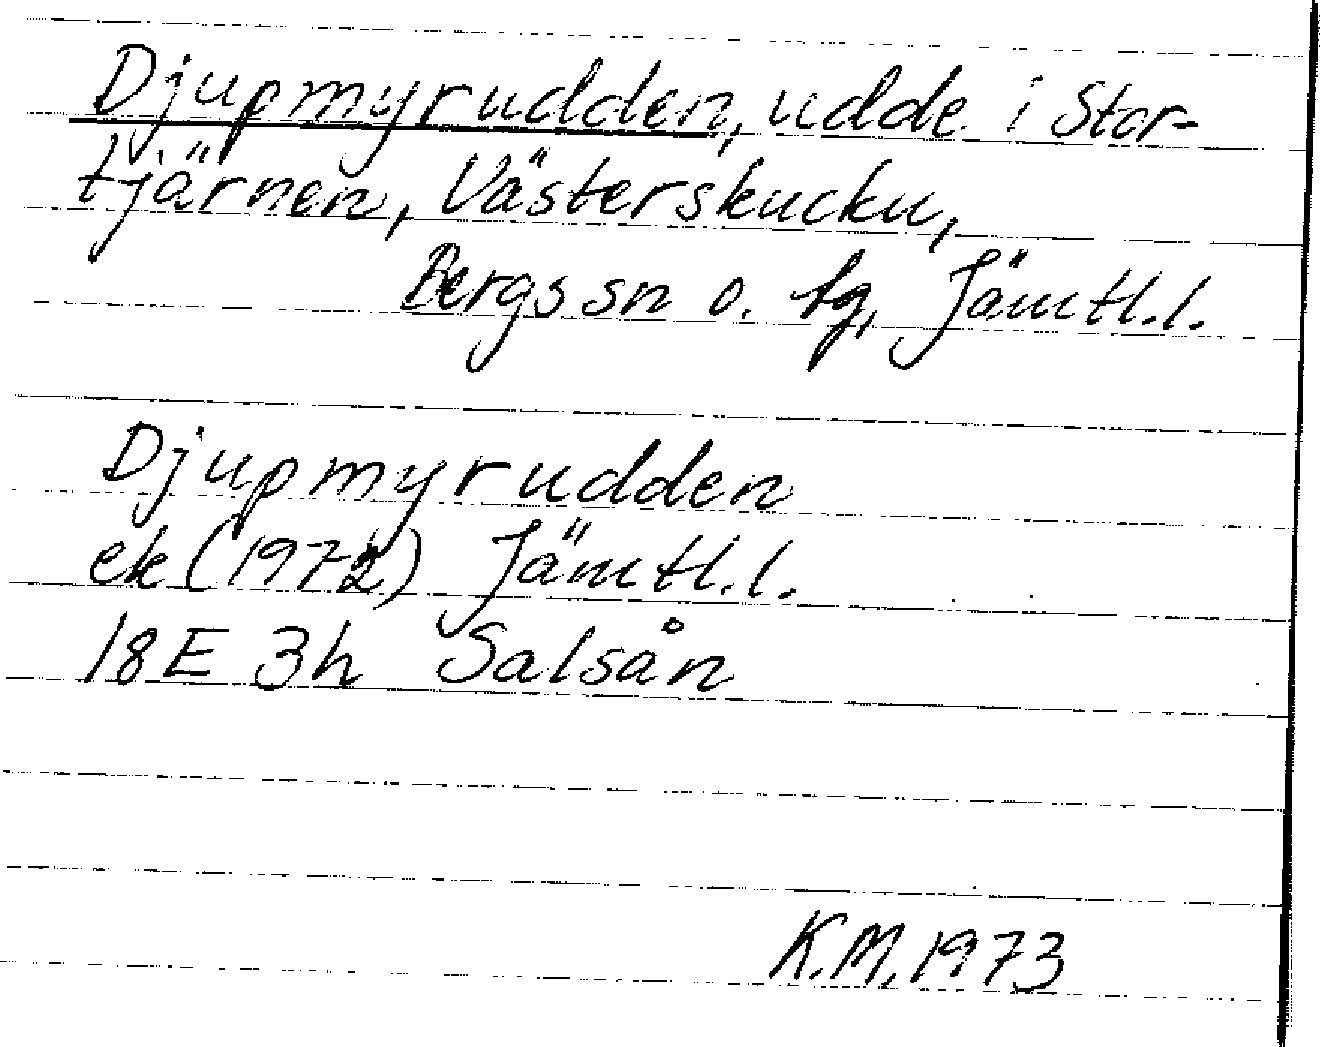 Djupmyrudden, udde i Stor-
tjärnen, Västerskucku,
Bergs sn o. tg, Jämtl.l.
Djupmyrudden
ek (1972) Jämtl.l.
18E 3h Salsån
K.M. 1973